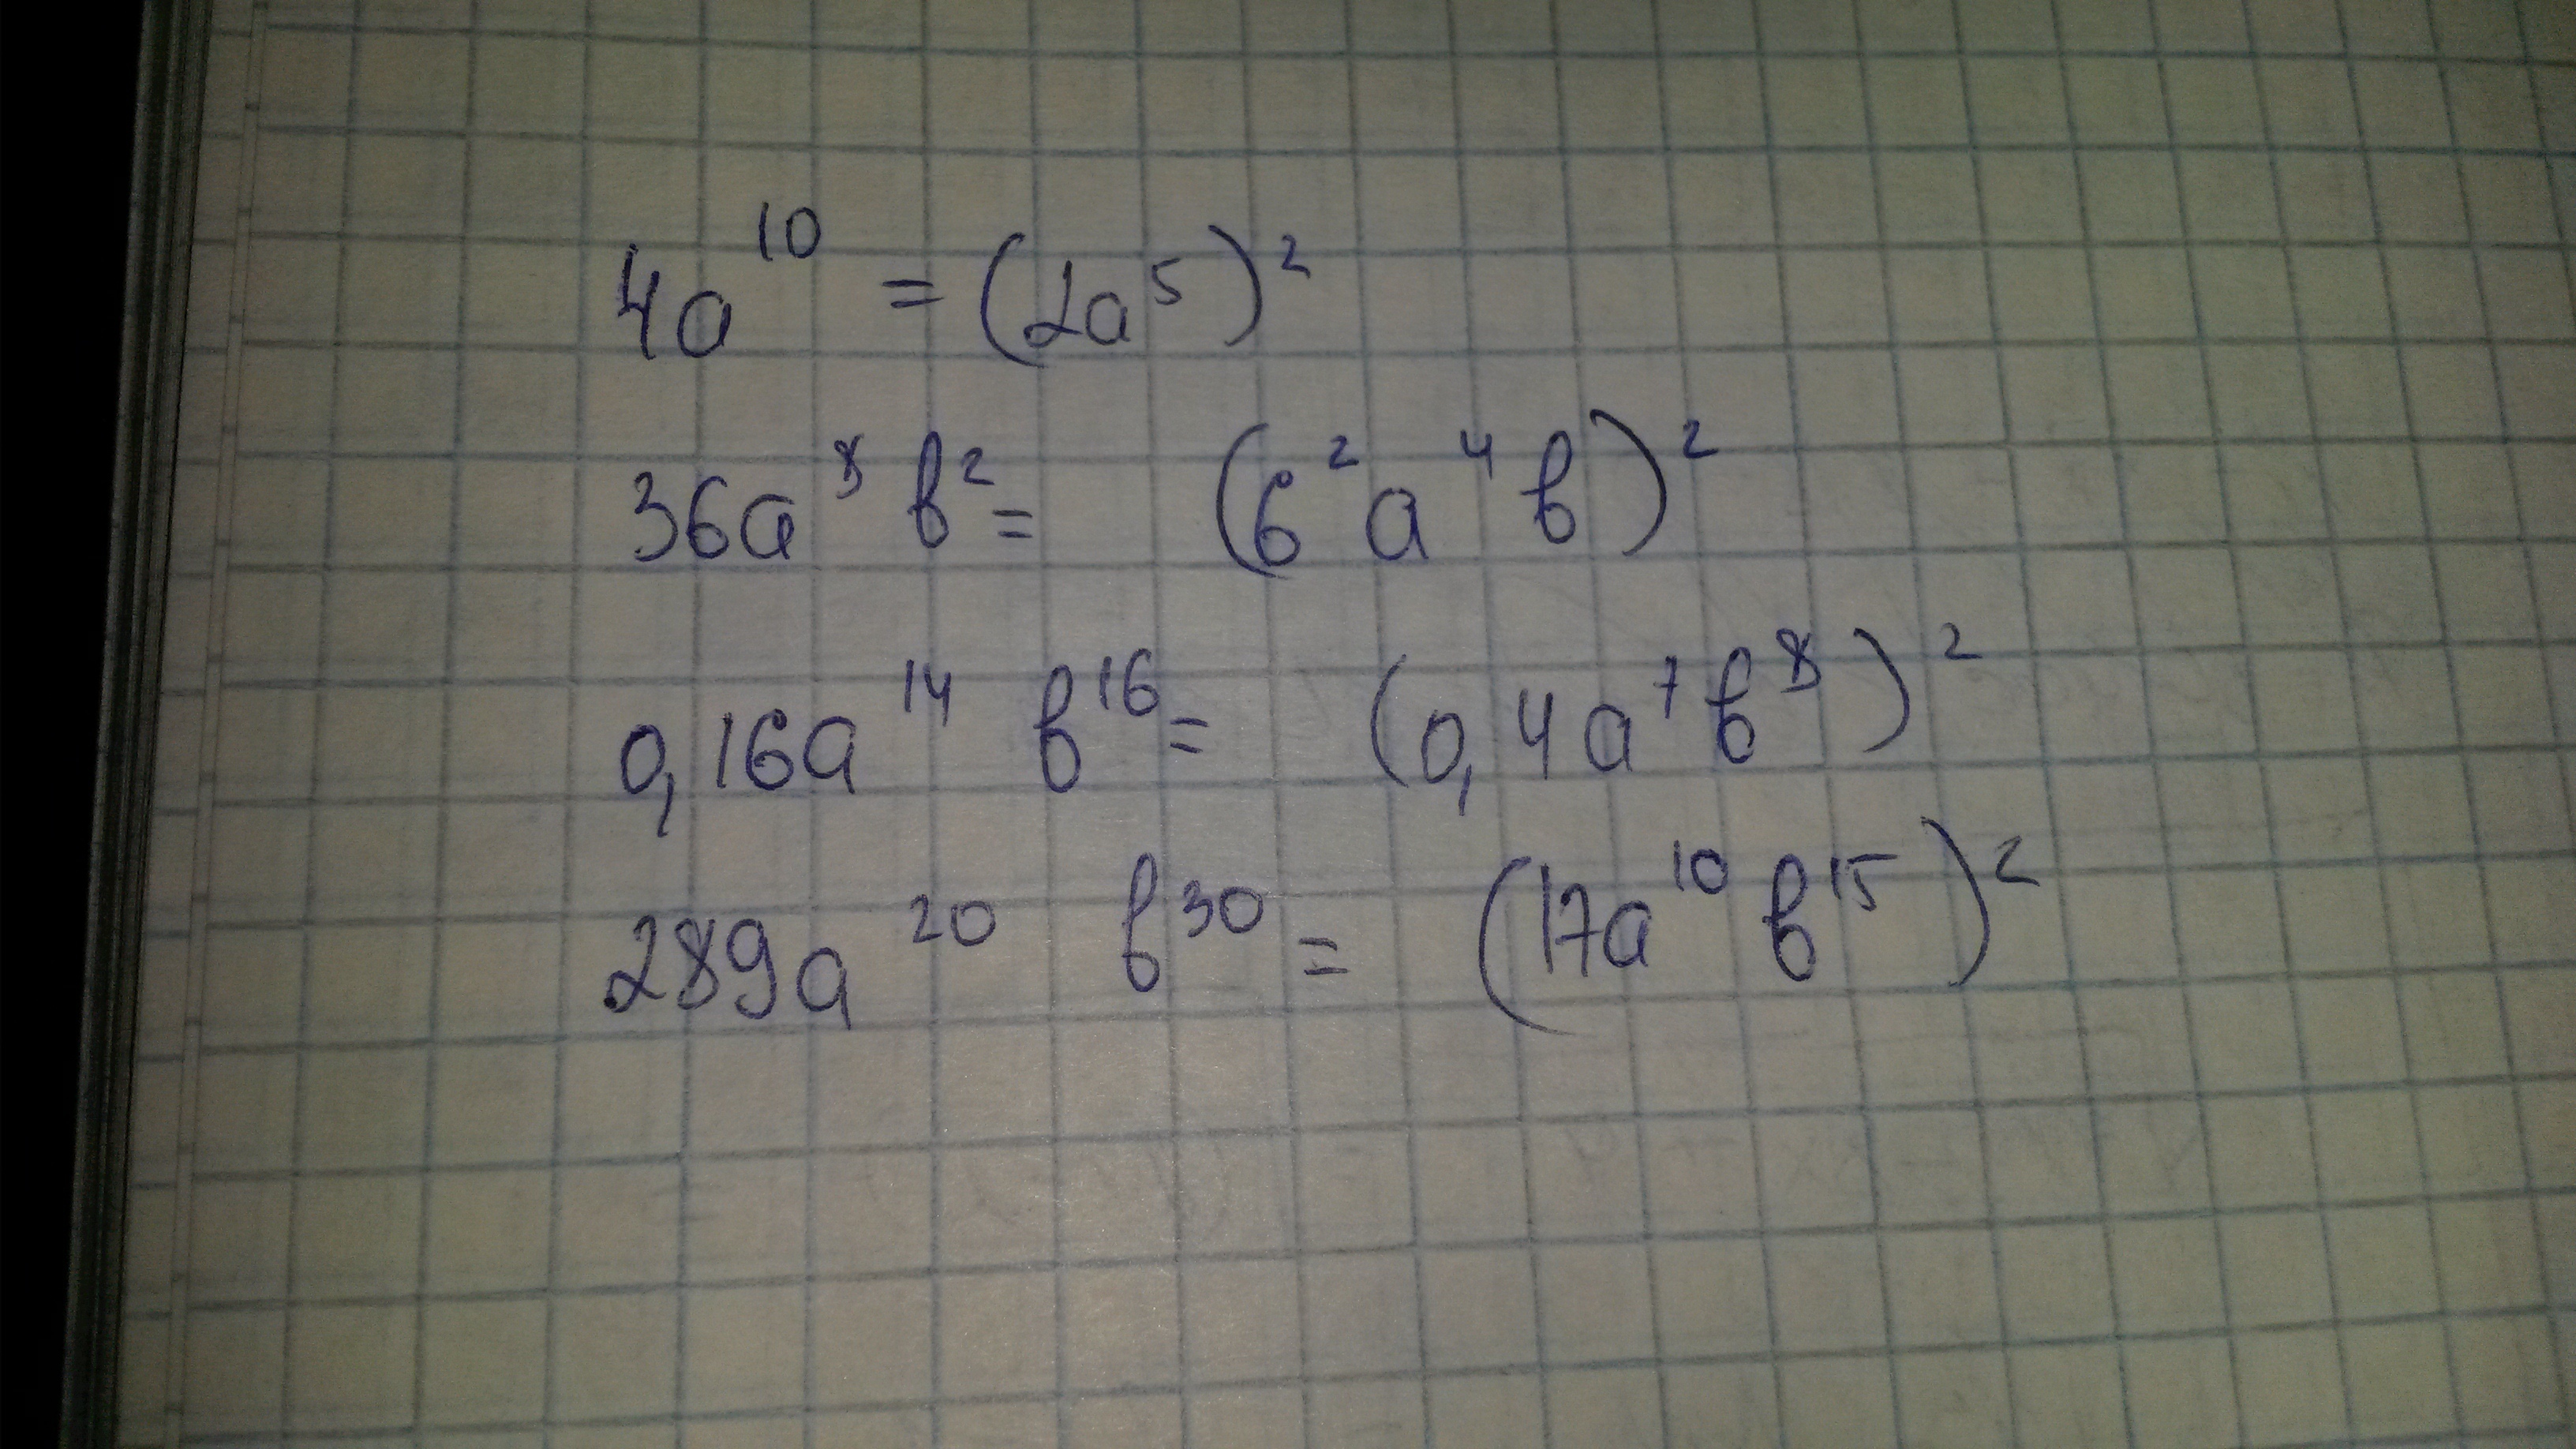 4a¹⁰ = (2a⁵)²
36a⁸ b² = (6²a⁴b)²
0,16a¹⁴ b¹⁶ = (0,4a⁷b⁸)²
289a²⁰ b³⁰ = (17a¹⁰b¹⁵)²